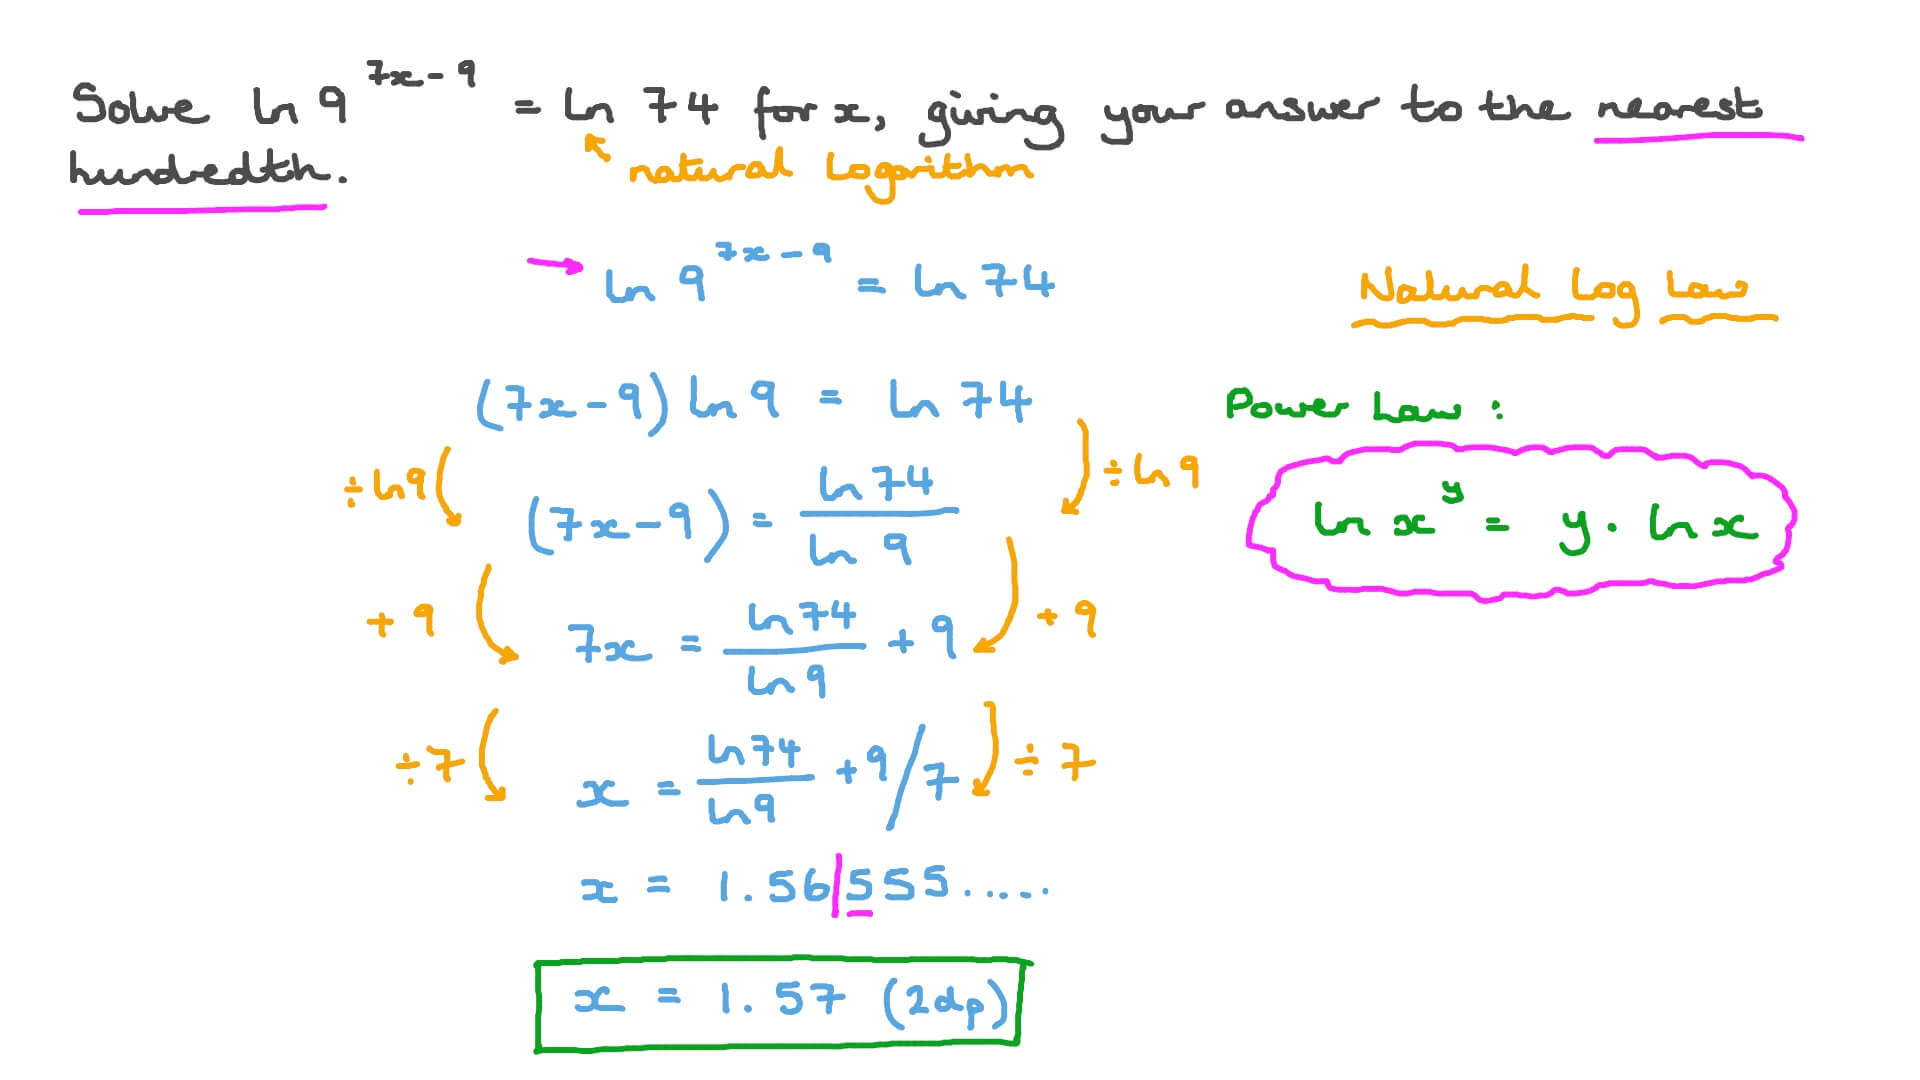 Solve ln 9^(7x-9) = ln 74 for x, giving your answer to the nearest
hundredth.
natural logarithm
ln 9^(7x-9) = ln 74
Natural Log Law
(7x-9) ln 9 = ln 74
Power Law :
÷ ln 9
÷ ln 9
(7x-9) = ln 74 / ln 9
ln x^y = y · ln x
+ 9
7x = ln 74 / ln 9 + 9
+ 9
÷ 7
x = ln 74 / ln 9 + 9 / 7
÷ 7
x = 1.56|555.....
x = 1.57 (2dp)